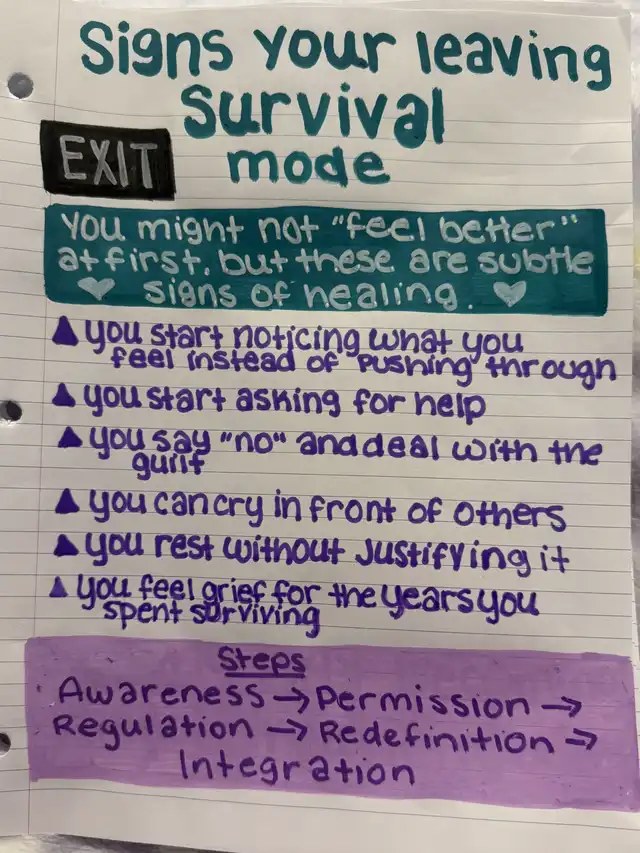 Signs your leaving
Survival
EXIT
mode
You might not "feel better"
at first, but these are subtle
signs of healing.
you start noticing what you
feel instead of "pushing" through
you start asking for help
you say "no" and deal with the
guilt
you can cry in front of others
you rest without justifying it
you feel grief for the years you
spent surviving
Steps
Awareness → Permission →
Regulation → Redefinition →
Integration